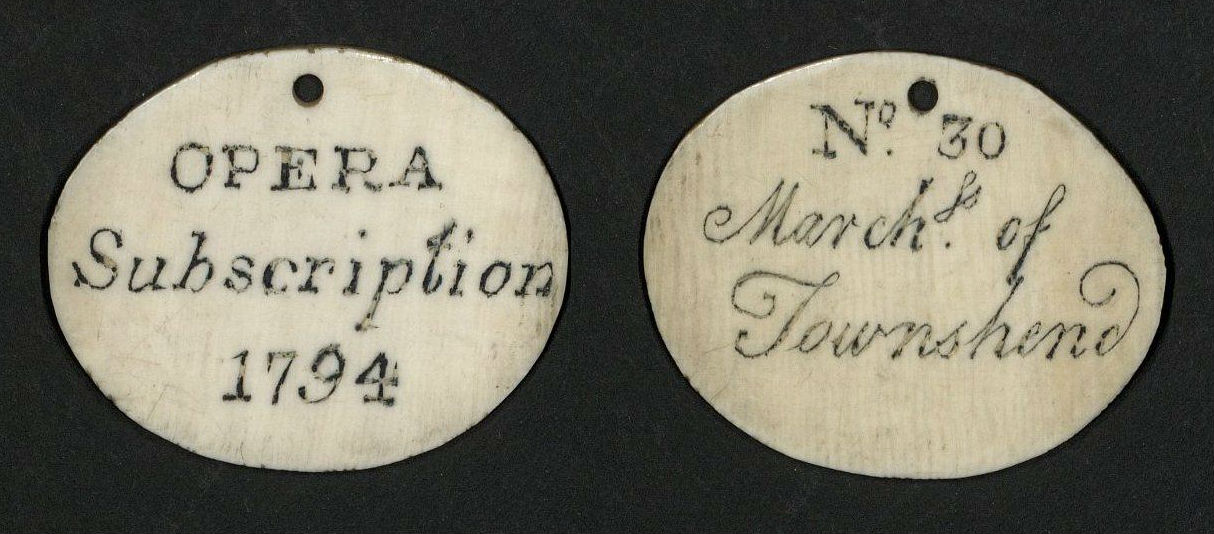 OPERA
Subscription
1794
Nº. 30
Marchˢˢ. of
Townshend